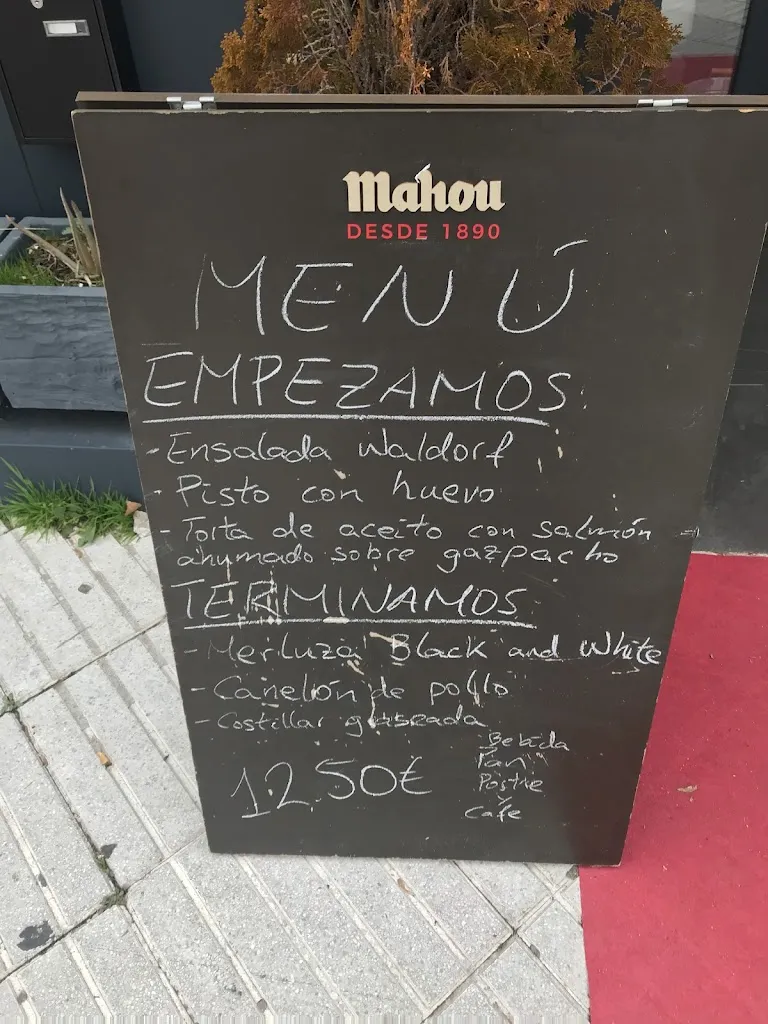 Mahou
DESDE 1890
MENÚ
EMPEZAMOS
- Ensalada Waldorf
- Pisto con huevo
- Torta de aceito con salmón
ahumado sobre gazpacho
TERMINAMOS
- Merluza Black and White
- Canelón de pollo
- Costillar glaseada
12.50€
Bebida
Pan
Postre
y
Cafe